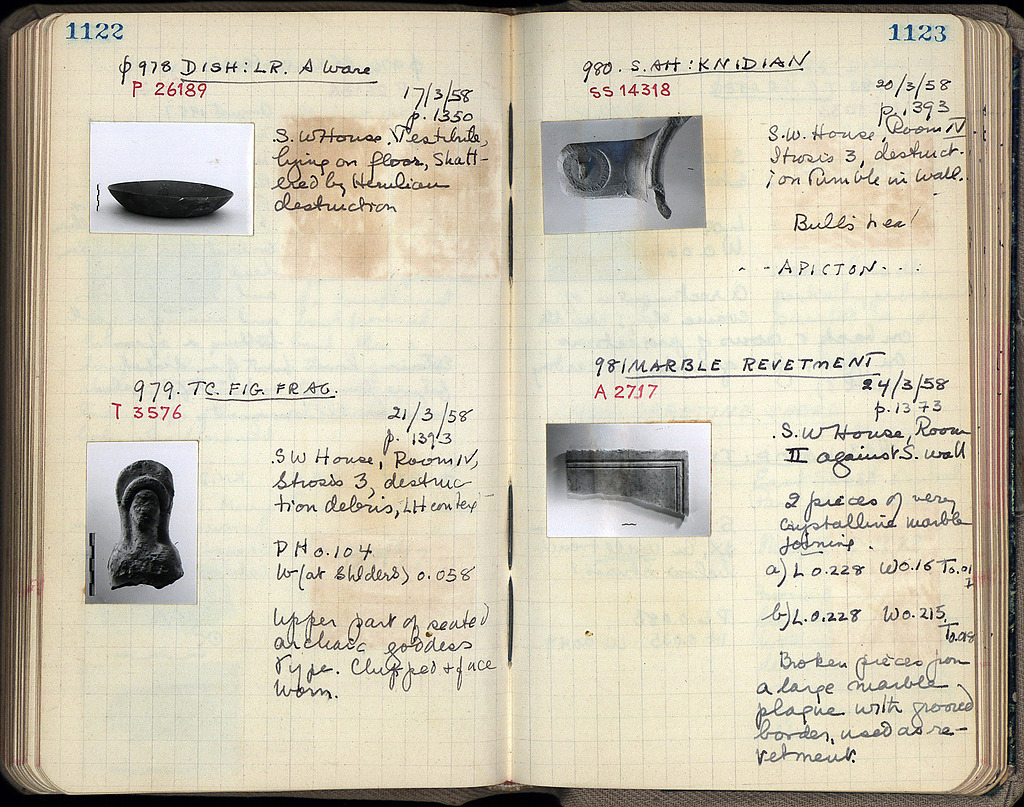 1122
φ 978 DISH: LR. A Ware
P 26189
17/3/58
p. 1350
S.W House. Vestibule,
lying on floor, Shatt-
ered by Herulian
destruction
979. TC. FIG. FRAG.
T 3576
21/3/58
p. 1393
SW House, Room IV,
Strosis 3, destruc
tion debris, LH contex
PH 0.104
W (at Shlders) 0.058
Upper part of seated
archaic goddess
Type. Chipped & face
worn.
1123
980. S. AH: KNIDIAN
SS 14318
20/3/58
p. 1393
S.W. House, Room IV
Strosis 3, destruct-
ion rumble in wall.
Bull's hea
- - APICTON. . .
981 MARBLE REVETMENT
A 2717
24/3/58
p. 1373
S.W House, Room
II against S. wall
2 pieces of very
crystalline marble
joining.
a) L 0.228 W 0.16 T 0.01
b) L. 0.228 W 0.215,
T 0.018
Broken pieces from
a large marble
plaque with grooved
border, used as re-
vetment.